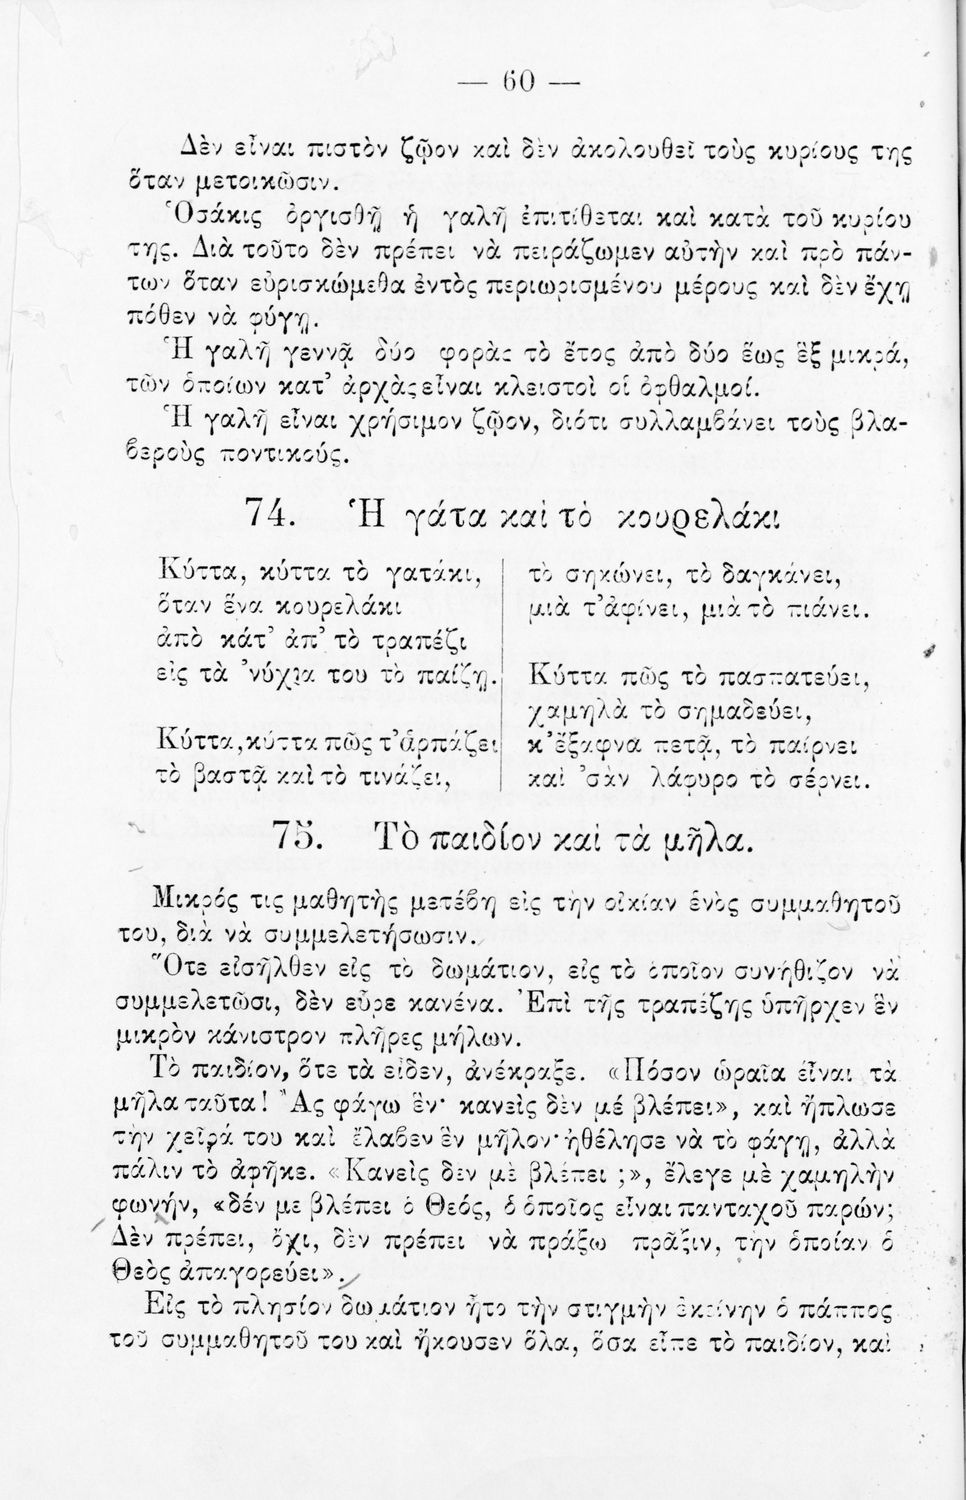 — 60 —
Δὲν εἶναι πιστὸν ζῷον καὶ δὲν ἀκολουθεῖ τοὺς κυρίους της
ὅταν μετοικῶσιν.
Ὁσάκις ὀργισθῇ ἡ γαλῆ ἐπιτίθεται καὶ κατὰ τοῦ κυρίου
της. Διὰ τοῦτο δὲν πρέπει νὰ πειράζωμεν αὐτὴν καὶ πρὸ πάν-
των ὅταν εὑρισκώμεθα ἐντὸς περιωρισμένου μέρους καὶ δὲν ἔχῃ
πόθεν νὰ φύγῃ.
Ἡ γαλῆ γεννᾷ δύο φορὰς τὸ ἔτος ἀπὸ δύο ἕως ἓξ μικρά,
τῶν ὁποίων κατ’ ἀρχὰς εἶναι κλειστοὶ οἱ ὀφθαλμοί.
Ἡ γαλῆ εἶναι χρήσιμον ζῷον, διότι συλλαμβάνει τοὺς βλα-
βεροὺς ποντικούς.
74. Ἡ γάτα καὶ τὸ κουρελάκι
Κύττα, κύττα τὸ γατάκι,
ὅταν ἕνα κουρελάκι
ἀπὸ κάτ’ ἀπ’ τὸ τραπέζι
εἰς τὰ ’νύχια του τὸ παίζῃ.
Κύττα, κύττα πῶς τ’ἁρπάζει
τὸ βαστᾷ καὶ τὸ τινάζει,
τὸ σηκώνει, τὸ δαγκάνει,
μιὰ τ’ἀφίνει, μιὰ τὸ πιάνει.
Κύττα πῶς τὸ πασπατεύει,
χαμηλὰ τὸ σημαδεύει,
κ’ἔξαφνα πετᾷ, τὸ παίρνει
καὶ ’σὰν λάφυρο τὸ σέρνει.
75. Τὸ παιδίον καὶ τὰ μῆλα.
Μικρός τις μαθητὴς μετέβη εἰς τὴν οἰκίαν ἑνὸς συμμαθητοῦ
του, διὰ νὰ συμμελετήσωσιν.
Ὅτε εἰσῆλθεν εἰς τὸ δωμάτιον, εἰς τὸ ὁποῖον συνήθιζον νὰ
συμμελετῶσι, δὲν εὗρε κανένα. Ἐπὶ τῆς τραπέζης ὑπῆρχεν ἓν
μικρὸν κάνιστρον πλῆρες μήλων.
Τὸ παιδίον, ὅτε τὰ εἶδεν, ἀνέκραξε. «Πόσον ὡραῖα εἶναι τὰ
μῆλα ταῦτα! Ἂς φάγω ἕν· κανεὶς δὲν μέ βλέπει», καὶ ἥπλωσε
τὴν χεῖρά του καὶ ἔλαβεν ἓν μῆλον· ἠθέλησε νὰ τὸ φάγῃ, ἀλλὰ
πάλιν τὸ ἀφῆκε. «Κανεὶς δὲν μὲ βλέπει ;», ἔλεγε μὲ χαμηλὴν
φωνήν, «δέν με βλέπει ὁ Θεός, ὁ ὁποῖος εἶναι πανταχοῦ παρών;
Δὲν πρέπει, ὄχι, δὲν πρέπει νὰ πράξω πρᾶξιν, τὴν ὁποίαν ὁ
Θεὸς ἀπαγορεύει».
Εἰς τὸ πλησίον δωμάτιον ἦτο τὴν στιγμὴν ἐκείνην ὁ πάππος
τοῦ συμμαθητοῦ του καὶ ἤκουσεν ὅλα, ὅσα εἶπε τὸ παιδίον, καὶ